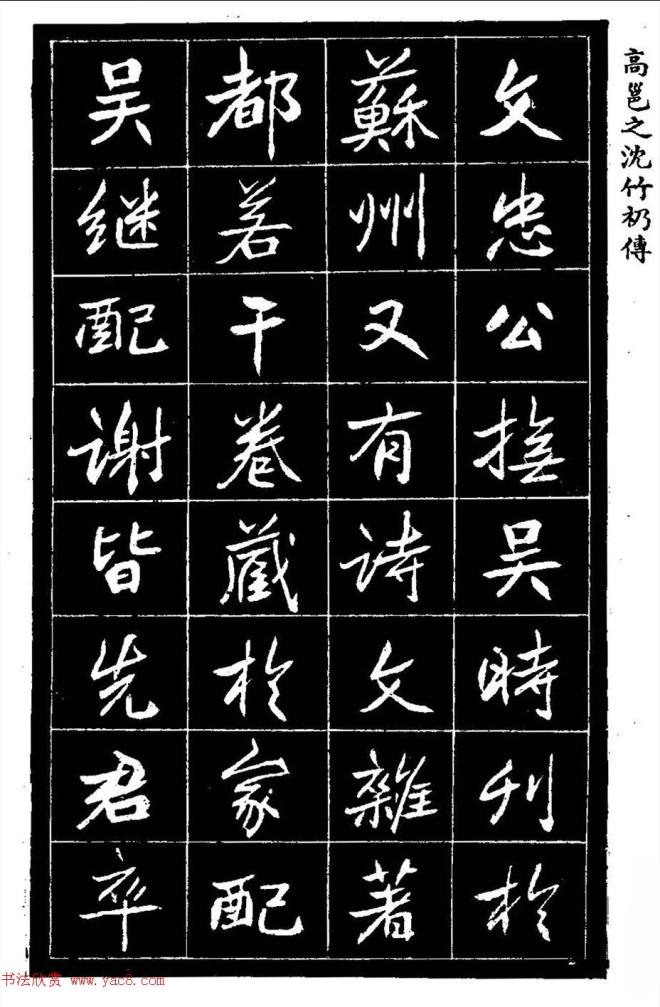 高邕之沈竹礽傳
文忠公撫吴時刊於
蘇州又有诗文雜著
都若干卷藏於家配
吴继配谢皆先君卒
书法欣赏 www.yac8.com